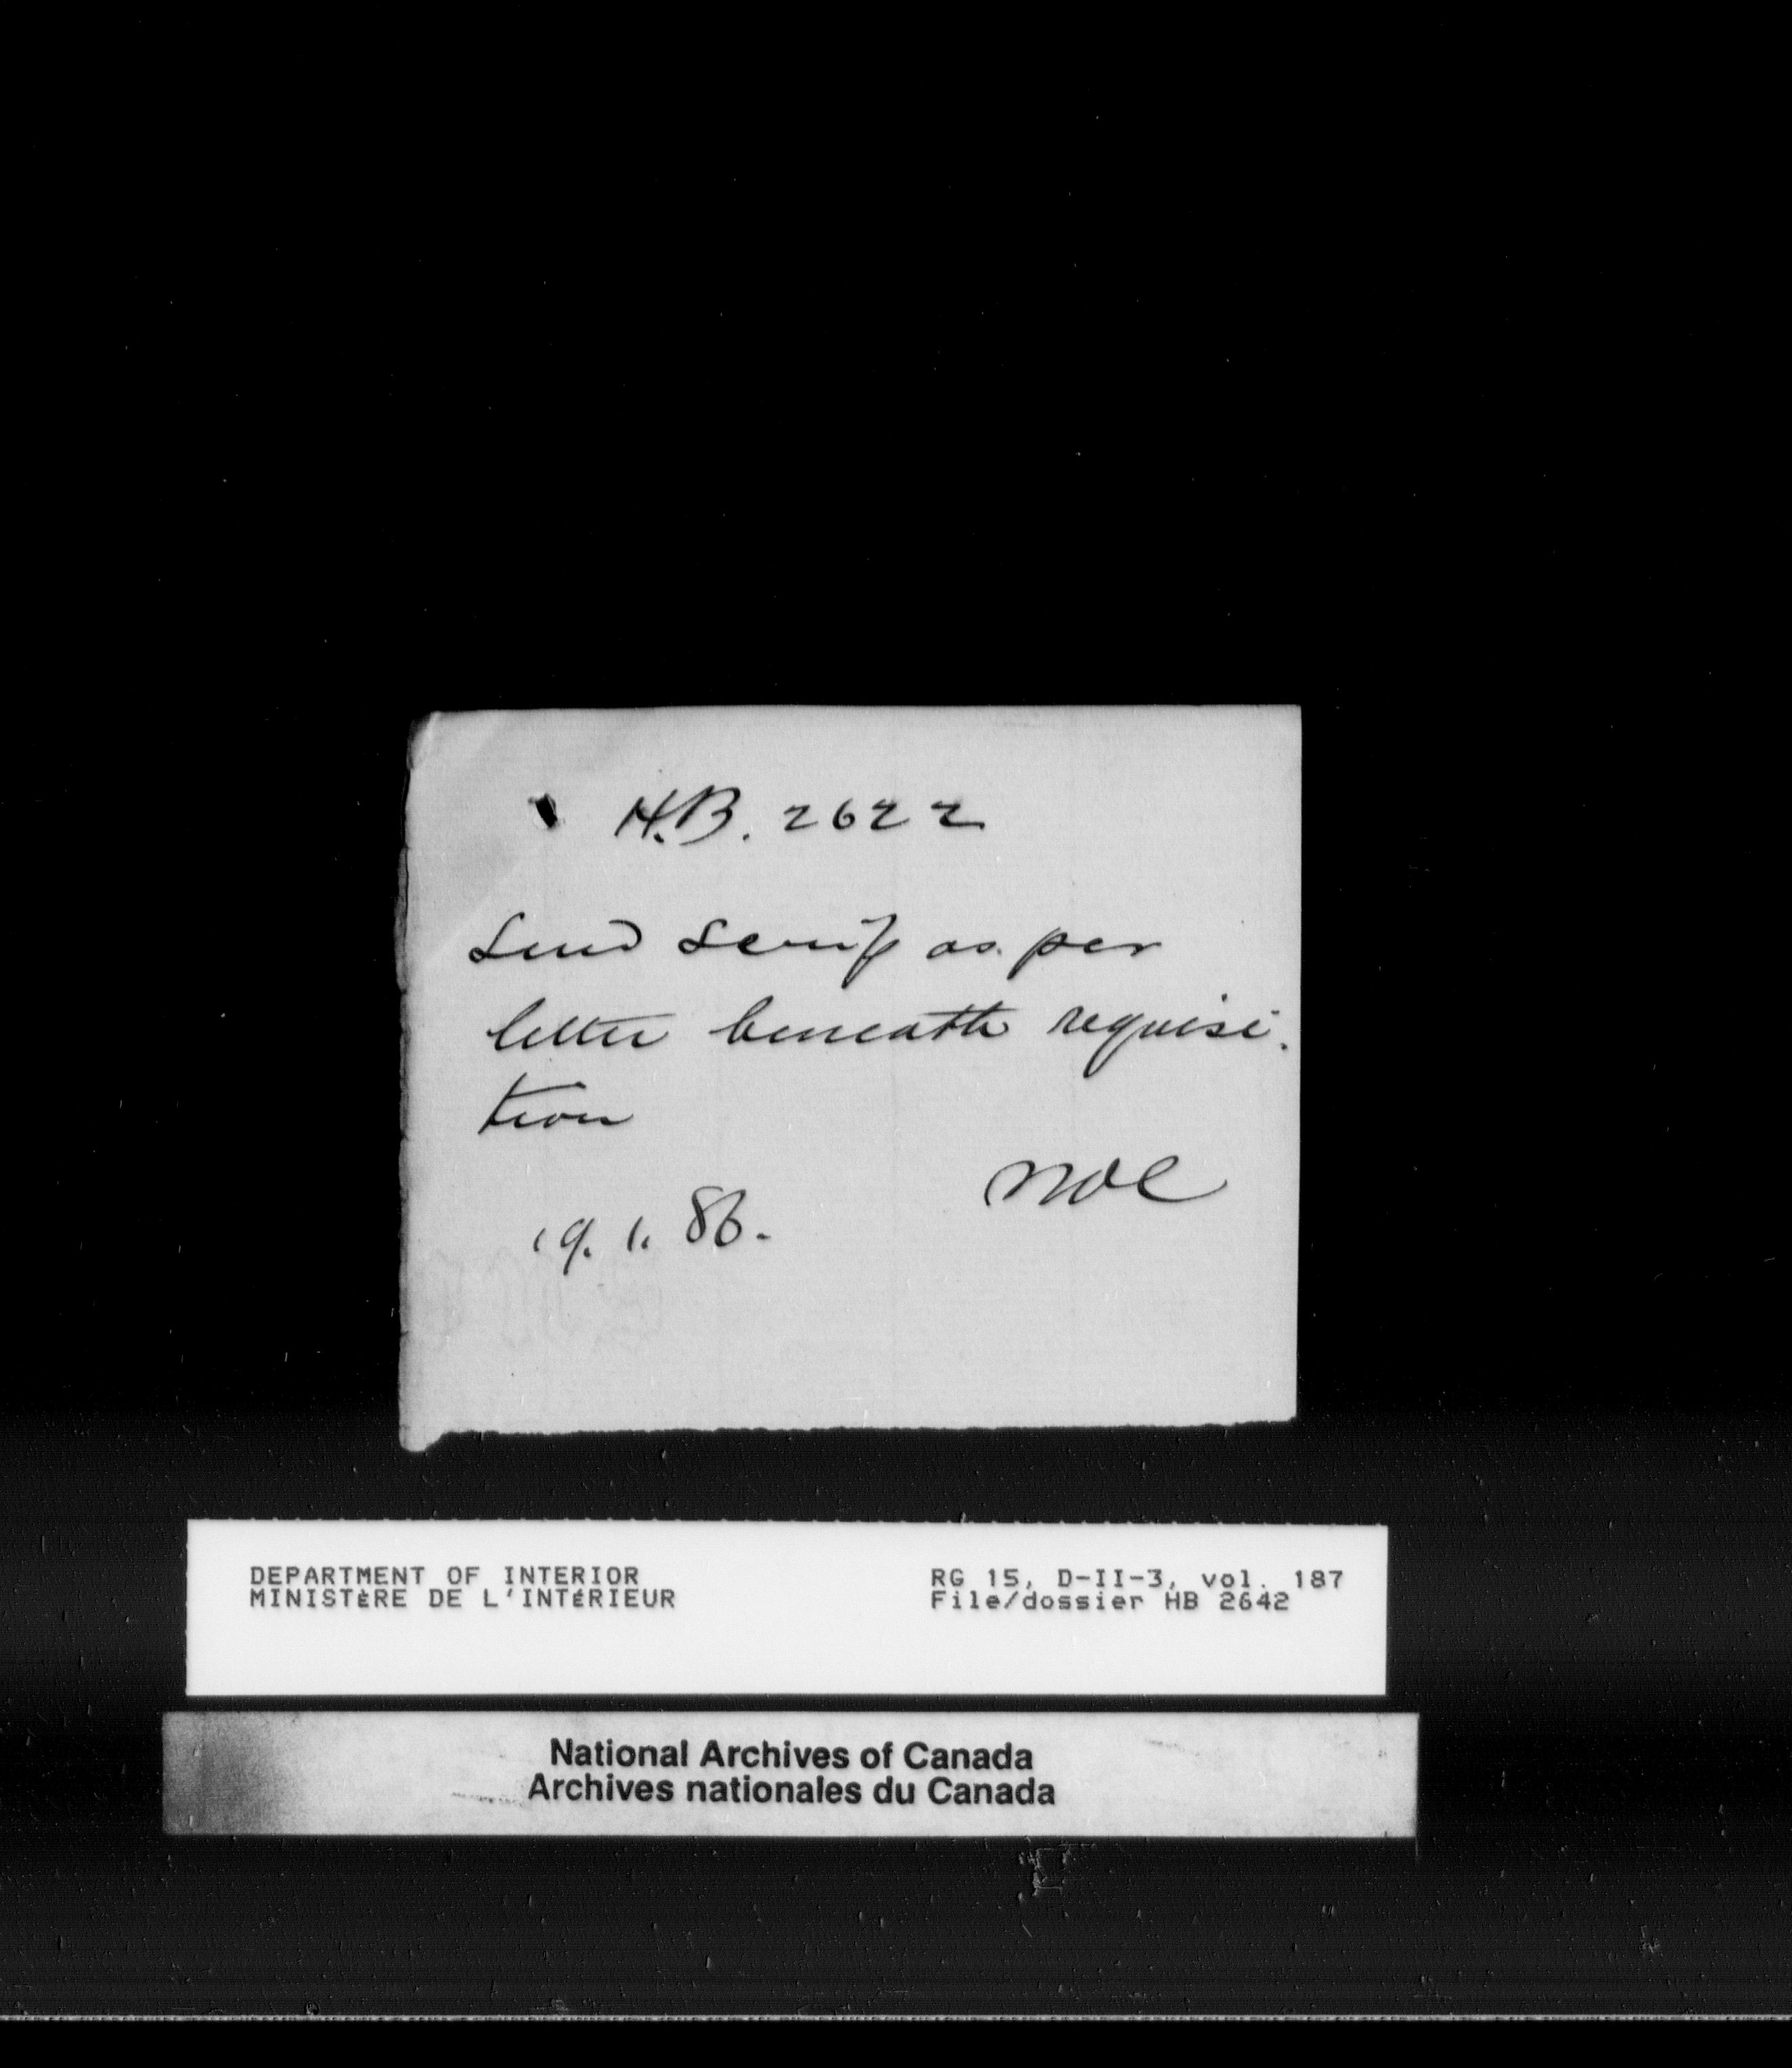 H.B. 2622
Send Scrip as per
letter beneath requisi-
tion
NOC
19. 1. 86.
DEPARTMENT OF INTERIOR
MINISTÈRE DE L'INTÉRIEUR
RG 15, D-II-3, vol. 187
File/dossier HB 2642
National Archives of Canada
Archives nationales du Canada